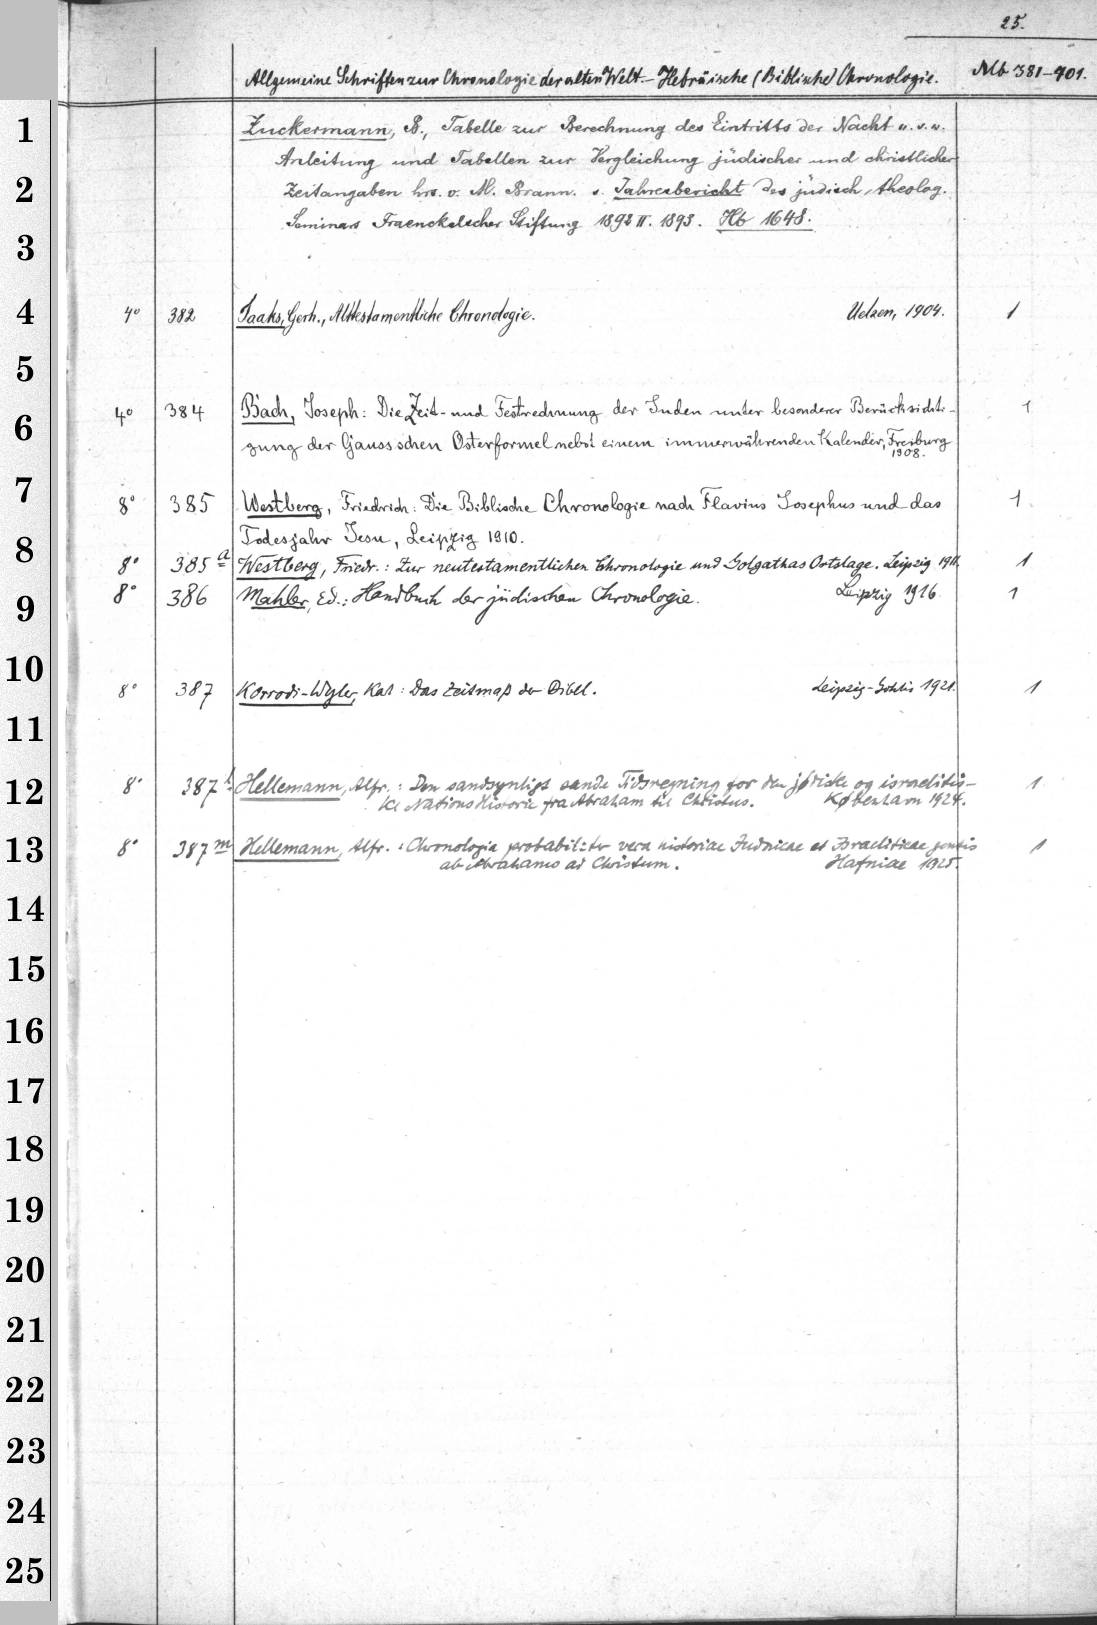 25.
Allgemeine Schriften zur Chronologie der alten Welt. – Hebräische (Biblische) Chronologie. Mb 381–401.
1
Zuckermann, B., Tabelle zur Berechnung des Eintritts der Nacht u. s. w.
Anleitung und Tabellen zur Vergleichung jüdischer und christlicher
2
Zeitangaben hrs. v. M. Brann. s. Jahresbericht des jüdisch-theolog.
Seminars Fraenckelscher Stiftung 1892 II. 1893. Hb 1648.
3
4
4° 382 Jaaks, Gerh., Alttestamentliche Chronologie. Uelzen, 1904. 1
5
4° 384 Bach, Joseph: Die Zeit- und Festrechnung der Juden unter besonderer Berücksichti- 1
6
gung der Gaussschen Osterformel nebst einem immerwährenden Kalender, Freiburg
1908.
7
8° 385 Westberg, Friedrich: Die Biblische Chronologie nach Flavius Josephus und das 1
Todesjahr Jesu, Leipzig 1910.
8
8° 385 a Westberg, Friedr.: Zur neutestamentlichen Chronologie und Golgathas Ortslage. Leipzig 1911. 1
8° 386 Mahler, Ed.: Handbuch der jüdischen Chronologie. Leipzig 1916. 1
9
10
8° 387 Korrodi-Wyler, Kat: Das Zeitmaß der Bibel. Leipzig-Gohlis 1921. 1
11
12
8° 387 Hellemann, Alfr.: Den sandsynligt sande Tidsregning for den jødiske og israelitis- 1
ke Nations Historie fra Abraham til Christus. København 1924.
13
8° 387 m Hellemann, Alfr.: Chronologia probabiliter vera historiae Judaicae et Israeliticae gentis 1
ab Abrahamo ad Christum. Hafniae 1925.
14
15
16
17
18
19
20
21
22
23
24
25